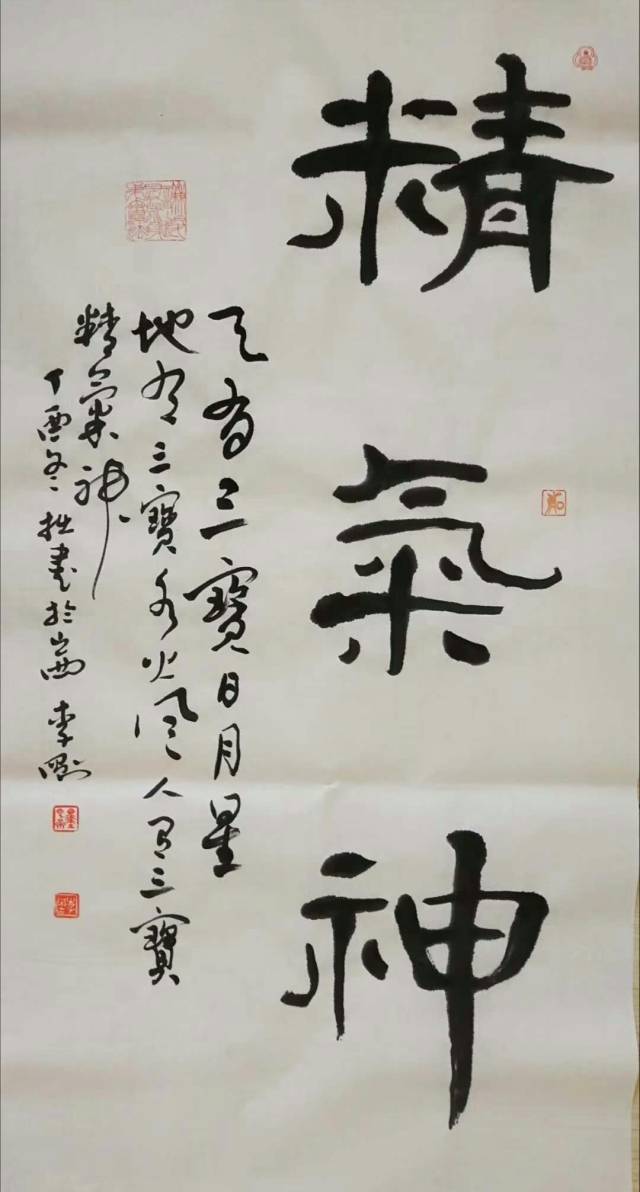 精氣神
天有三寶日月星
地有三寶水火風人有三寶
精氣神
丁酉冬拙書於山西 李剛